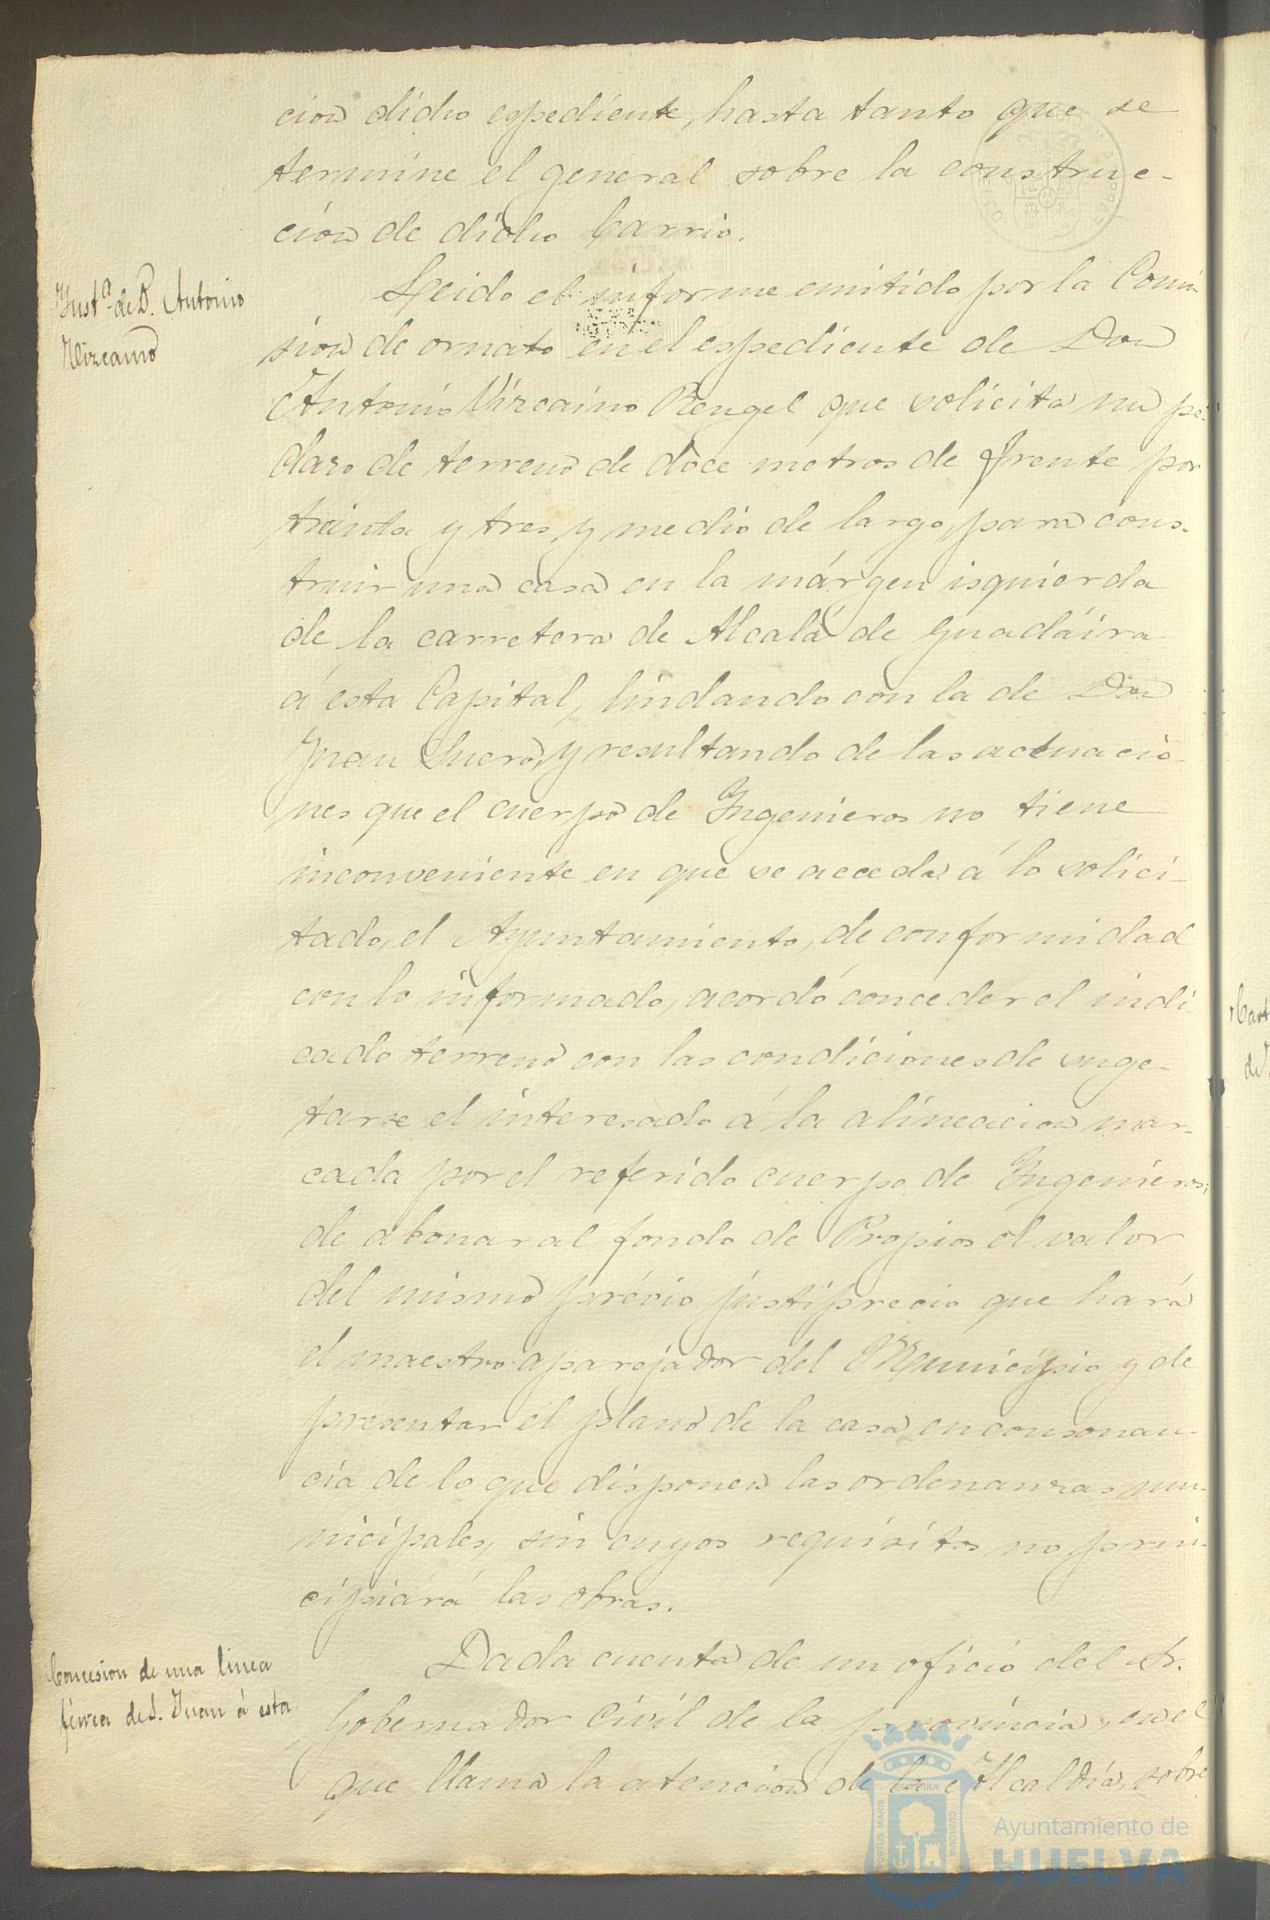 cion dicho espediente, hasta tanto que se
termine el general sobre la construc-
ción de dicho barrio.
Inst.ª de D. Antonio
Vizcaino
Leido el informe emitido por la Comi-
sion de ornato en el espediente de Don
Antonio Vizcaino Rengel que solicita un pe-
dazo de terreno de doce metros de frente por
treinta y tres y medio de largo, para cons-
truir una casa en la márgen isquierda
de la carretera de Alcalá de Guadáira
á esta Capital, lindando con la de Don
Juan Suero, y resultando de las actuacio-
nes que el cuerpo de Ingenieros no tiene
inconveniente en que se acceda á lo solici-
tado, el Ayuntamiento, de conformidad
con lo informado, acordó conceder el indi-
cado terreno con las condiciones de suge-
tarse el interesado á la alineacion mar-
cada por el referido cuerpo de Ingenieros;
de abonar al fondo de Propios el valor
del mismo prévio justiprecio que hará
el maestro aparejador del Municipio y de
presentar el plano de la casa en consonan-
cia de lo que disponen las ordenanzas mu-
nicipales, sin cuyos requisitos no prin-
cipiará las obras.
Concesion de una linea
férrea de S. Juan á esta
Dada cuenta de un oficio del Sr.
Gobernador Civil de la provincia, en el
que llama la atencion de la Alcaldía, sobre
Ayuntamiento de
HUELVA